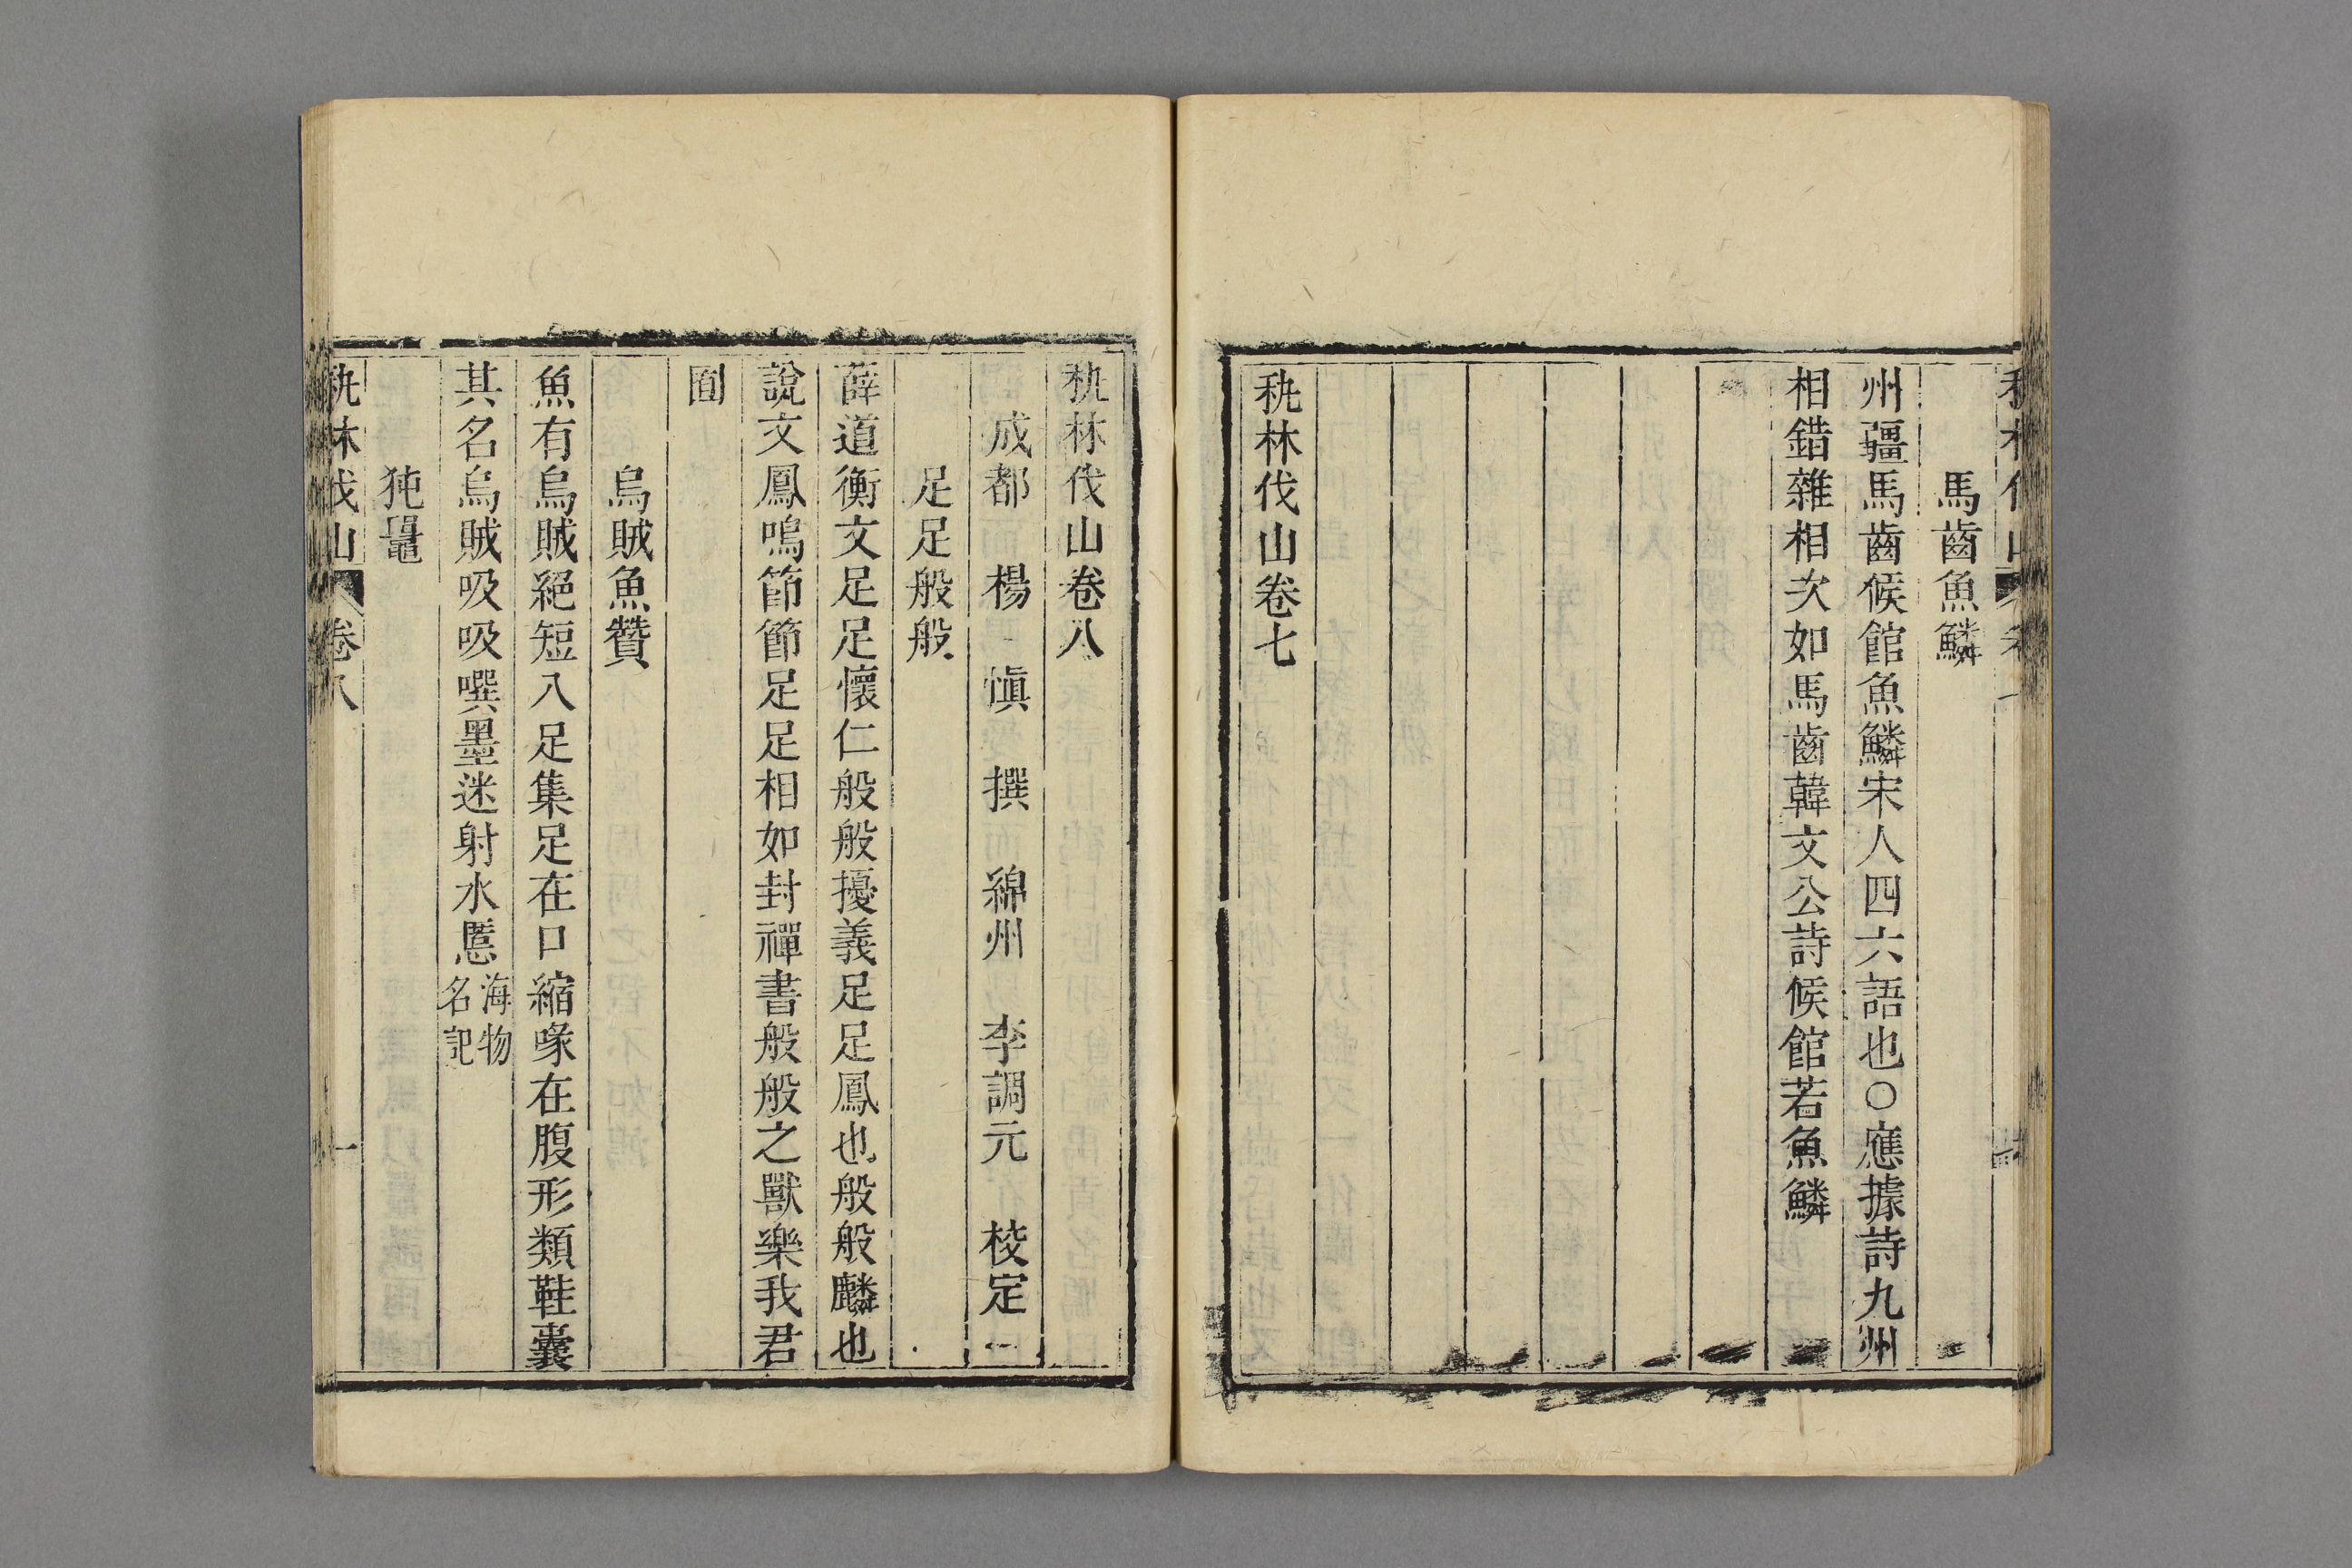 馬齒魚鱗
州疆馬齒候館魚鱗宋人四六語也○應據詩九州
相錯雜相次如馬齒韓文公詩候館若魚鱗
秇林伐山卷七
秇林伐山卷八
成都 楊 慎 撰 綿州 李調元 校定
足足般般
薛道衡文足足懷仁般般擾義足足鳳也般般麟也
說文鳳鳴節節足足相如封禪書般般之獸樂我君
囿
烏賊魚贊
魚有烏賊絕短八足集足在口縮喙在腹形類鞋囊
其名烏賊吸吸噀墨迷射水慝
海物
名記
秇林伐山 卷八 一